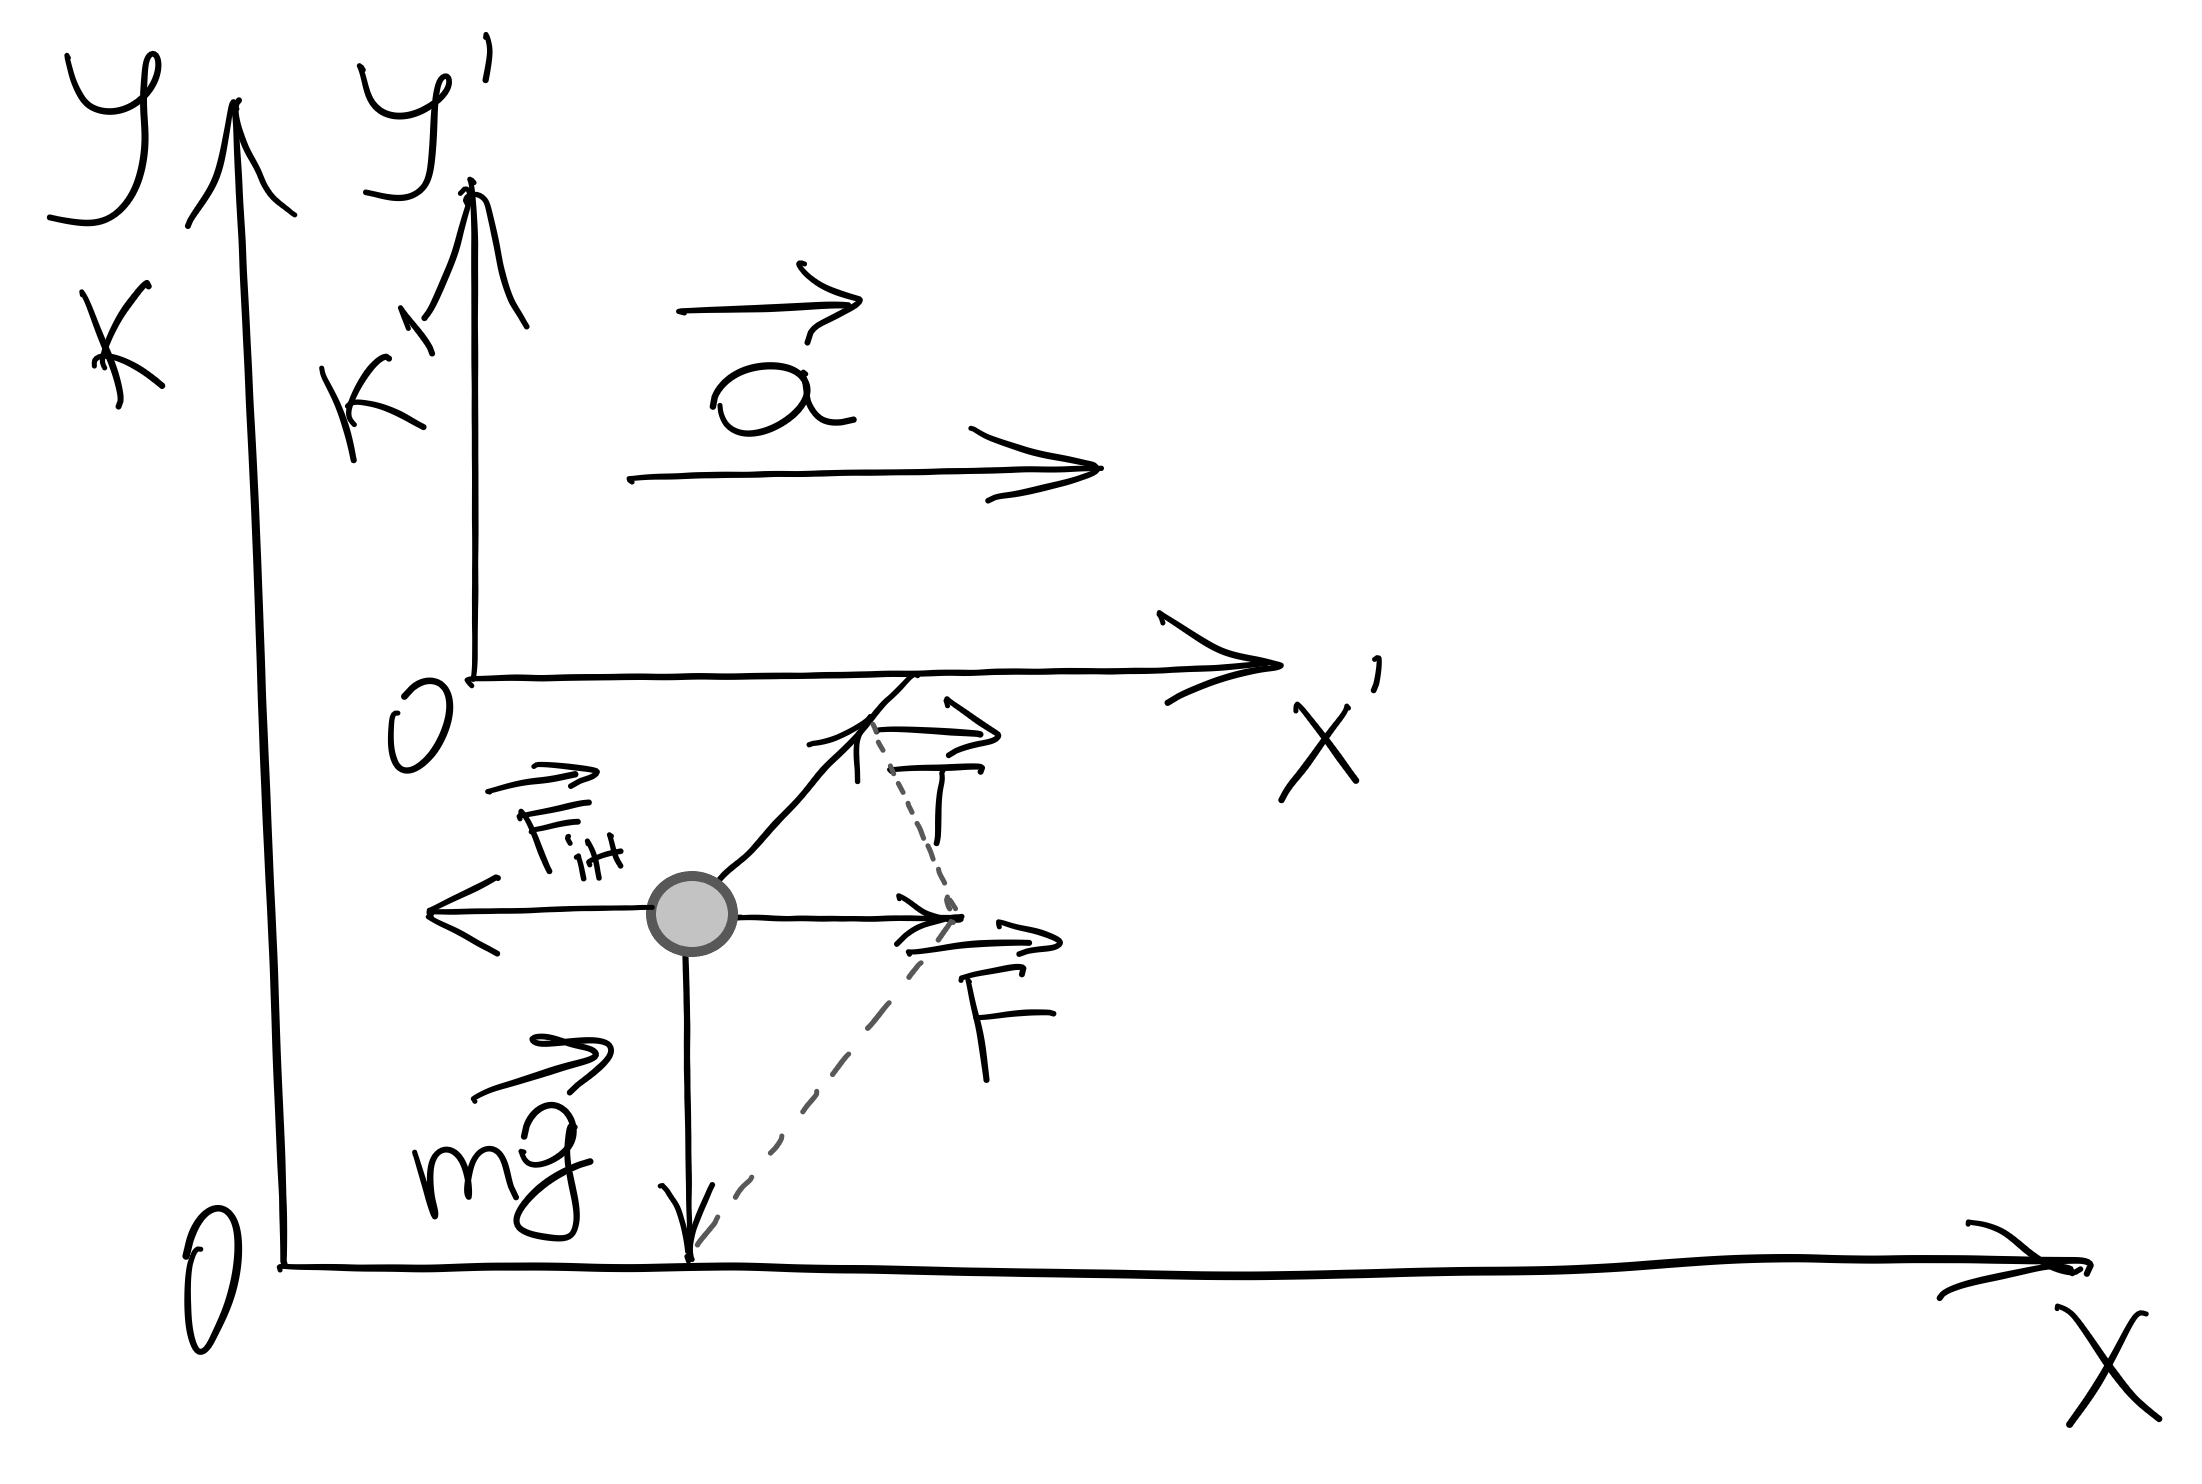 y
y'
K
K'
a
O
x'
T
Fin
F
mg
O
x